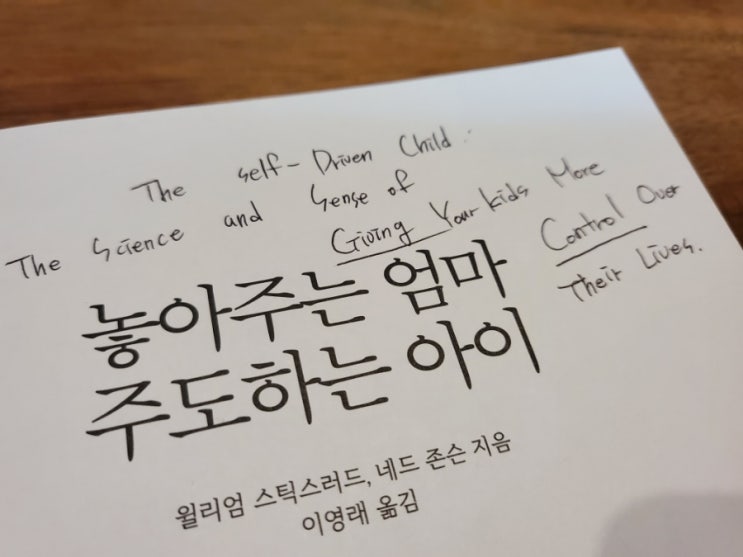 The self-Driven Child:
The Science and Sense of
Giving Your kids More
Control Over
Their Lives.
놓아주는 엄마
주도하는 아이
윌리엄 스틱스러드, 네드 존슨 지음
이영래 옮김